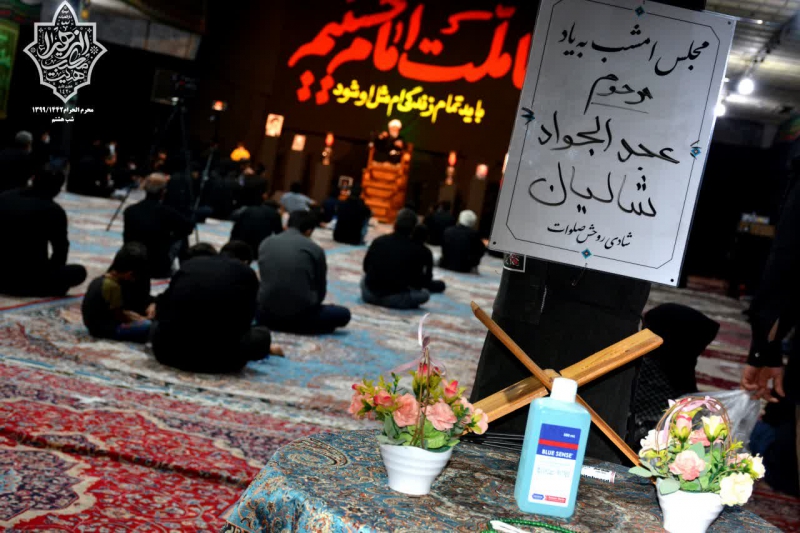 محرم الحرام ۱۳۹۹/۱۴۴۲
شب هشتم
ما ملت امام حسینیم
باید تمام زندگی ام مثل او شود
مجلس امشب به یاد
مرحوم
عبدالجواد
شالیان
شادی روحش صلوات
BLUE SENSE